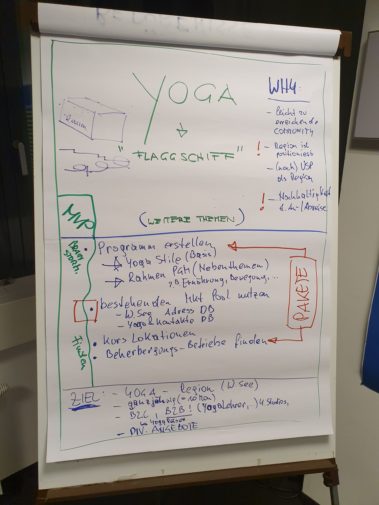 YOGA
"FLAGGSCHIFF"
WHY:
- leicht zu
erreichende
COMMUNITY
! - Region ist
positioniert
- (noch) USP
als Region
! - Nachhaltigkeit
(WEITERE THEMEN)
MVP
Programm erstellen
Yoga Stile (Basis)
Rahmen (Nebenthemen)
zB Ernährung, Bewegung, ...
bestehenden Mkt Pool nutzen
- W See Adress DB
- Yoga Kontakte DB
Kurs Lokationen
Beherbergungs-Betriebe finden
PAKETE
ZIEL:
- YOGA - Region (W See)
- ganzjährig
- B2C, B2B! (Yogalehrer, ) Studios,
- DIV. ANGEBOTE